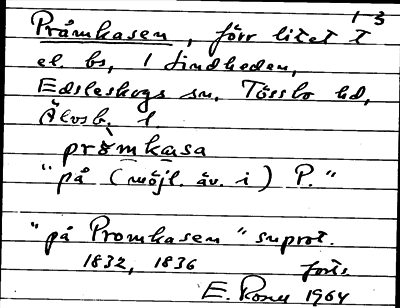 1 3
Pråmkasen, förr litet t
el. bs, 1 Lindheden,
Edsleskogs sn, Tössbo hd,
Älvsb. l
pròmkasa
"på (möjl. äv. i) P."
"på Promkasen" snprot.
1832, 1836 forts
E. 1964